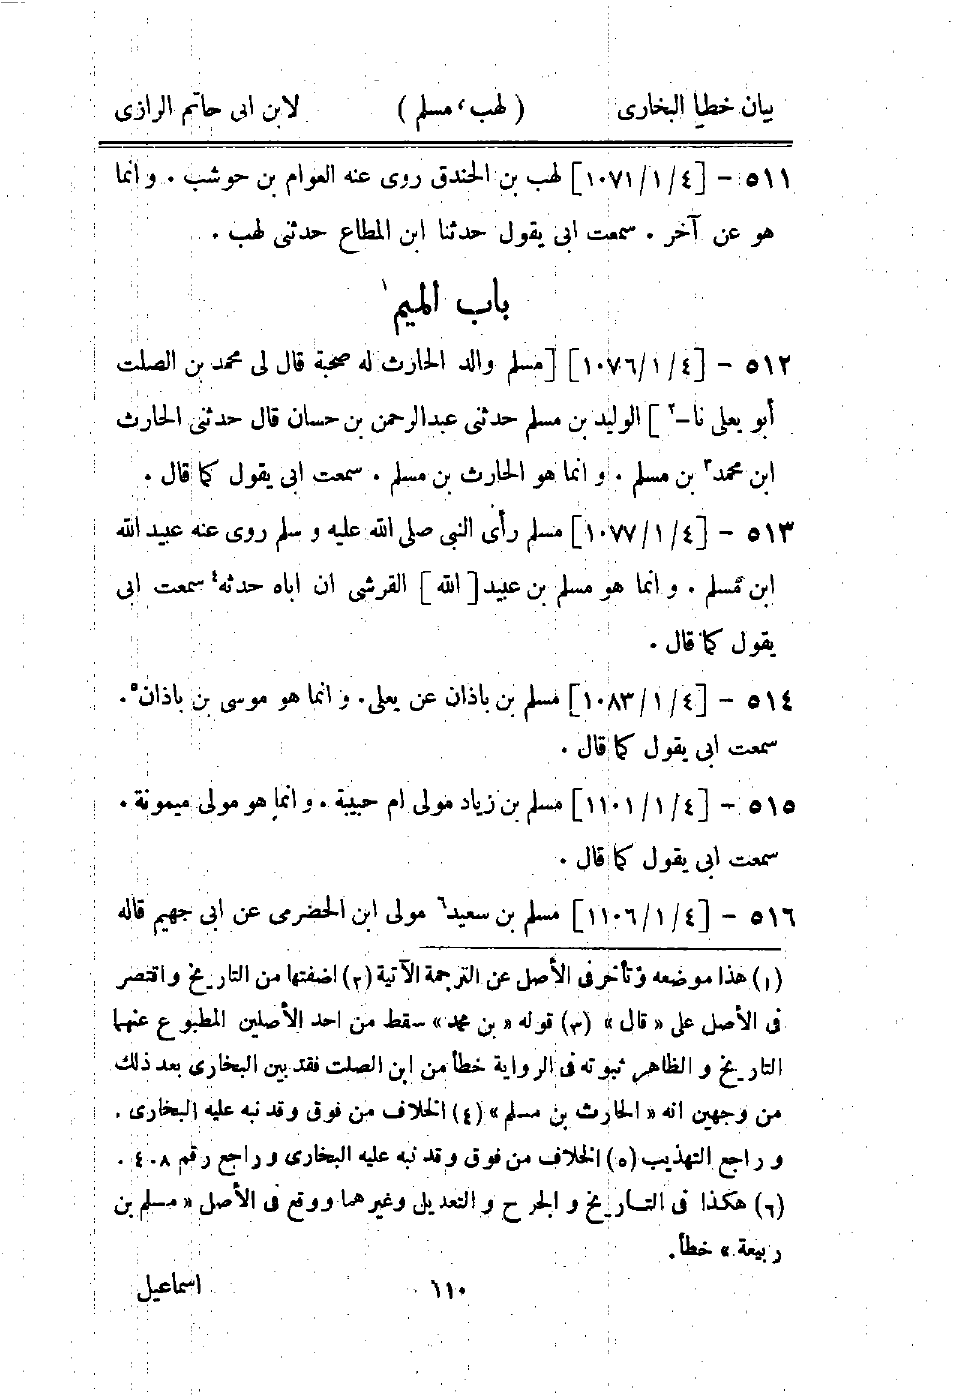 بيان خطإ البخارى ( لهب ، مسلم ) لابن ابى حاتم الرازى
٥١١ – [٤/١/١٠٧١] لهب بن الخندق روى عنه العوام بن حوشب . و انما
هو عن آخر . سمعت ابى يقول حدثنا ابن الطباع حدثنى لهب .
باب الميم١
٥١٢ – [٤/١/١٠٧٦] [مسلم والد الحارث له صحبة قال لى محمد بن الصلت
أبو يعلى نا–٢ ] الوليد بن مسلم حدثنى عبدالرحمن بن حسان قال حدثنى الحارث
ابن محمد٣ بن مسلم . و انما هو الحارث بن مسلم . سمعت ابى يقول كما قال .
٥١٣ – [٤/١/١٠٧٧] مسلم رأى النبى صلى الله عليه و سلم روى عنه عبيد الله
ابن مسلم . و انما هو مسلم بن عبيد[ الله ] القرشى ان اباه حدثه٤ سمعت ابى
يقول كما قال .
٥١٤ – [٤/١/١٠٨٣] مسلم بن باذان عن يعلى. و انما هو موسى بن باذان٥.
سمعت ابى يقول كما قال .
٥١٥ – [٤/١/١١٠١] مسلم بن زياد مولى ام حبيبة . و انما هو مولى ميمونة .
سمعت ابى يقول كما قال .
٥١٦ – [٤/١/١١٠٦] مسلم بن سعيد٦ مولى ابن الحضرمى عن ابى جهيم قاله
(١) هذا موضعه وتأخر فى الأصل عن الترجمة الآتية (٢) اضفتها من التاريخ واقتصر
فى الأصل على « قال » (٣) قوله « بن محمد » سقط من احد الأصلين المطبوع عنهما
التاريخ و الظاهر ثبوته فى الرواية خطأ من ابن الصلت فقد بين البخارى بعد ذلك
من وجهين انه « الحارث بن مسلم » (٤) الخلاف من فوق وقد نبه عليه البخارى .
و راجع التهذيب (٥) الخلاف من فوق وقد نبه عليه البخارى و راجع رقم ٤٠٨ .
(٦) هكذا فى التاريخ و الجرح و التعديل وغيرهما ووقع فى الأصل « مسلم بن
ربيعة » خطأ.
١١٠ اسماعيل